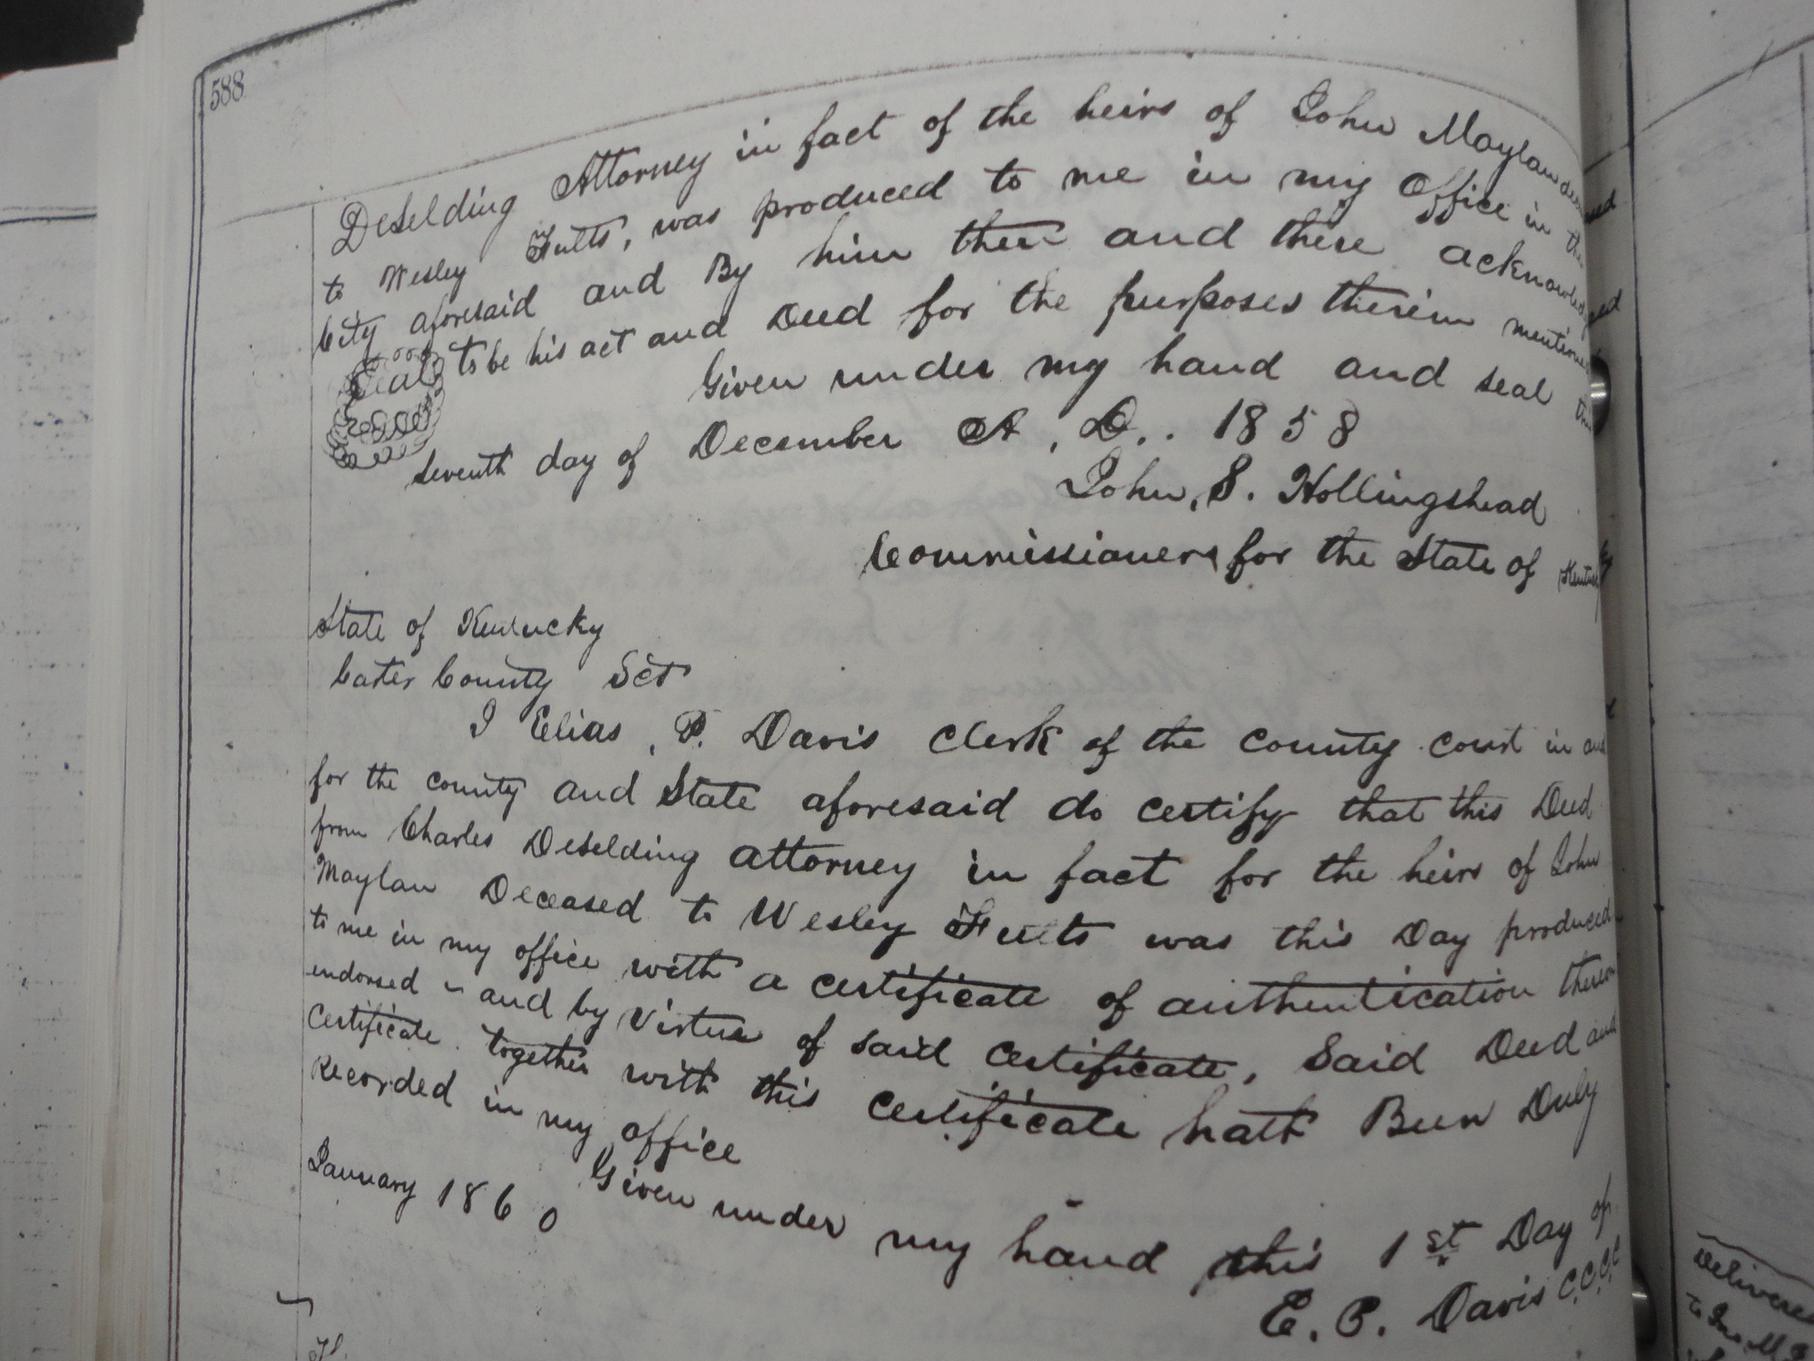 588
DeSelding Attorney in fact of the heirs of John Maylan deceased
to Wesley Fults, was produced to me in my Office in the
City aforesaid and By him then and there acknowledged
to be his act and Deed for the purposes therein mentioned
Seal
Given under my hand and seal this
seventh day of December A. D. 1858
John, S. Hollingshead
Commissioners for the State of Kentucky
State of Kentucky
Carter County Sct
I Elias, P. Davis Clerk of the county court in and
for the county and State aforesaid do certify that this Deed
from Charles DeSelding attorney in fact for the heirs of John
Maylan Deceased to Wesley Fults was this Day produced
to me in my office with a certificate of authentication thereon
endorsed - and by Virtue of said certificate, Said Deed and
Certificate together with this certificate hath Been Duly
Recorded in my office
Given under my hand this 1st Day of
January 1860
E. P. Davis C.C.C.C
Delivered
to Jno. M.